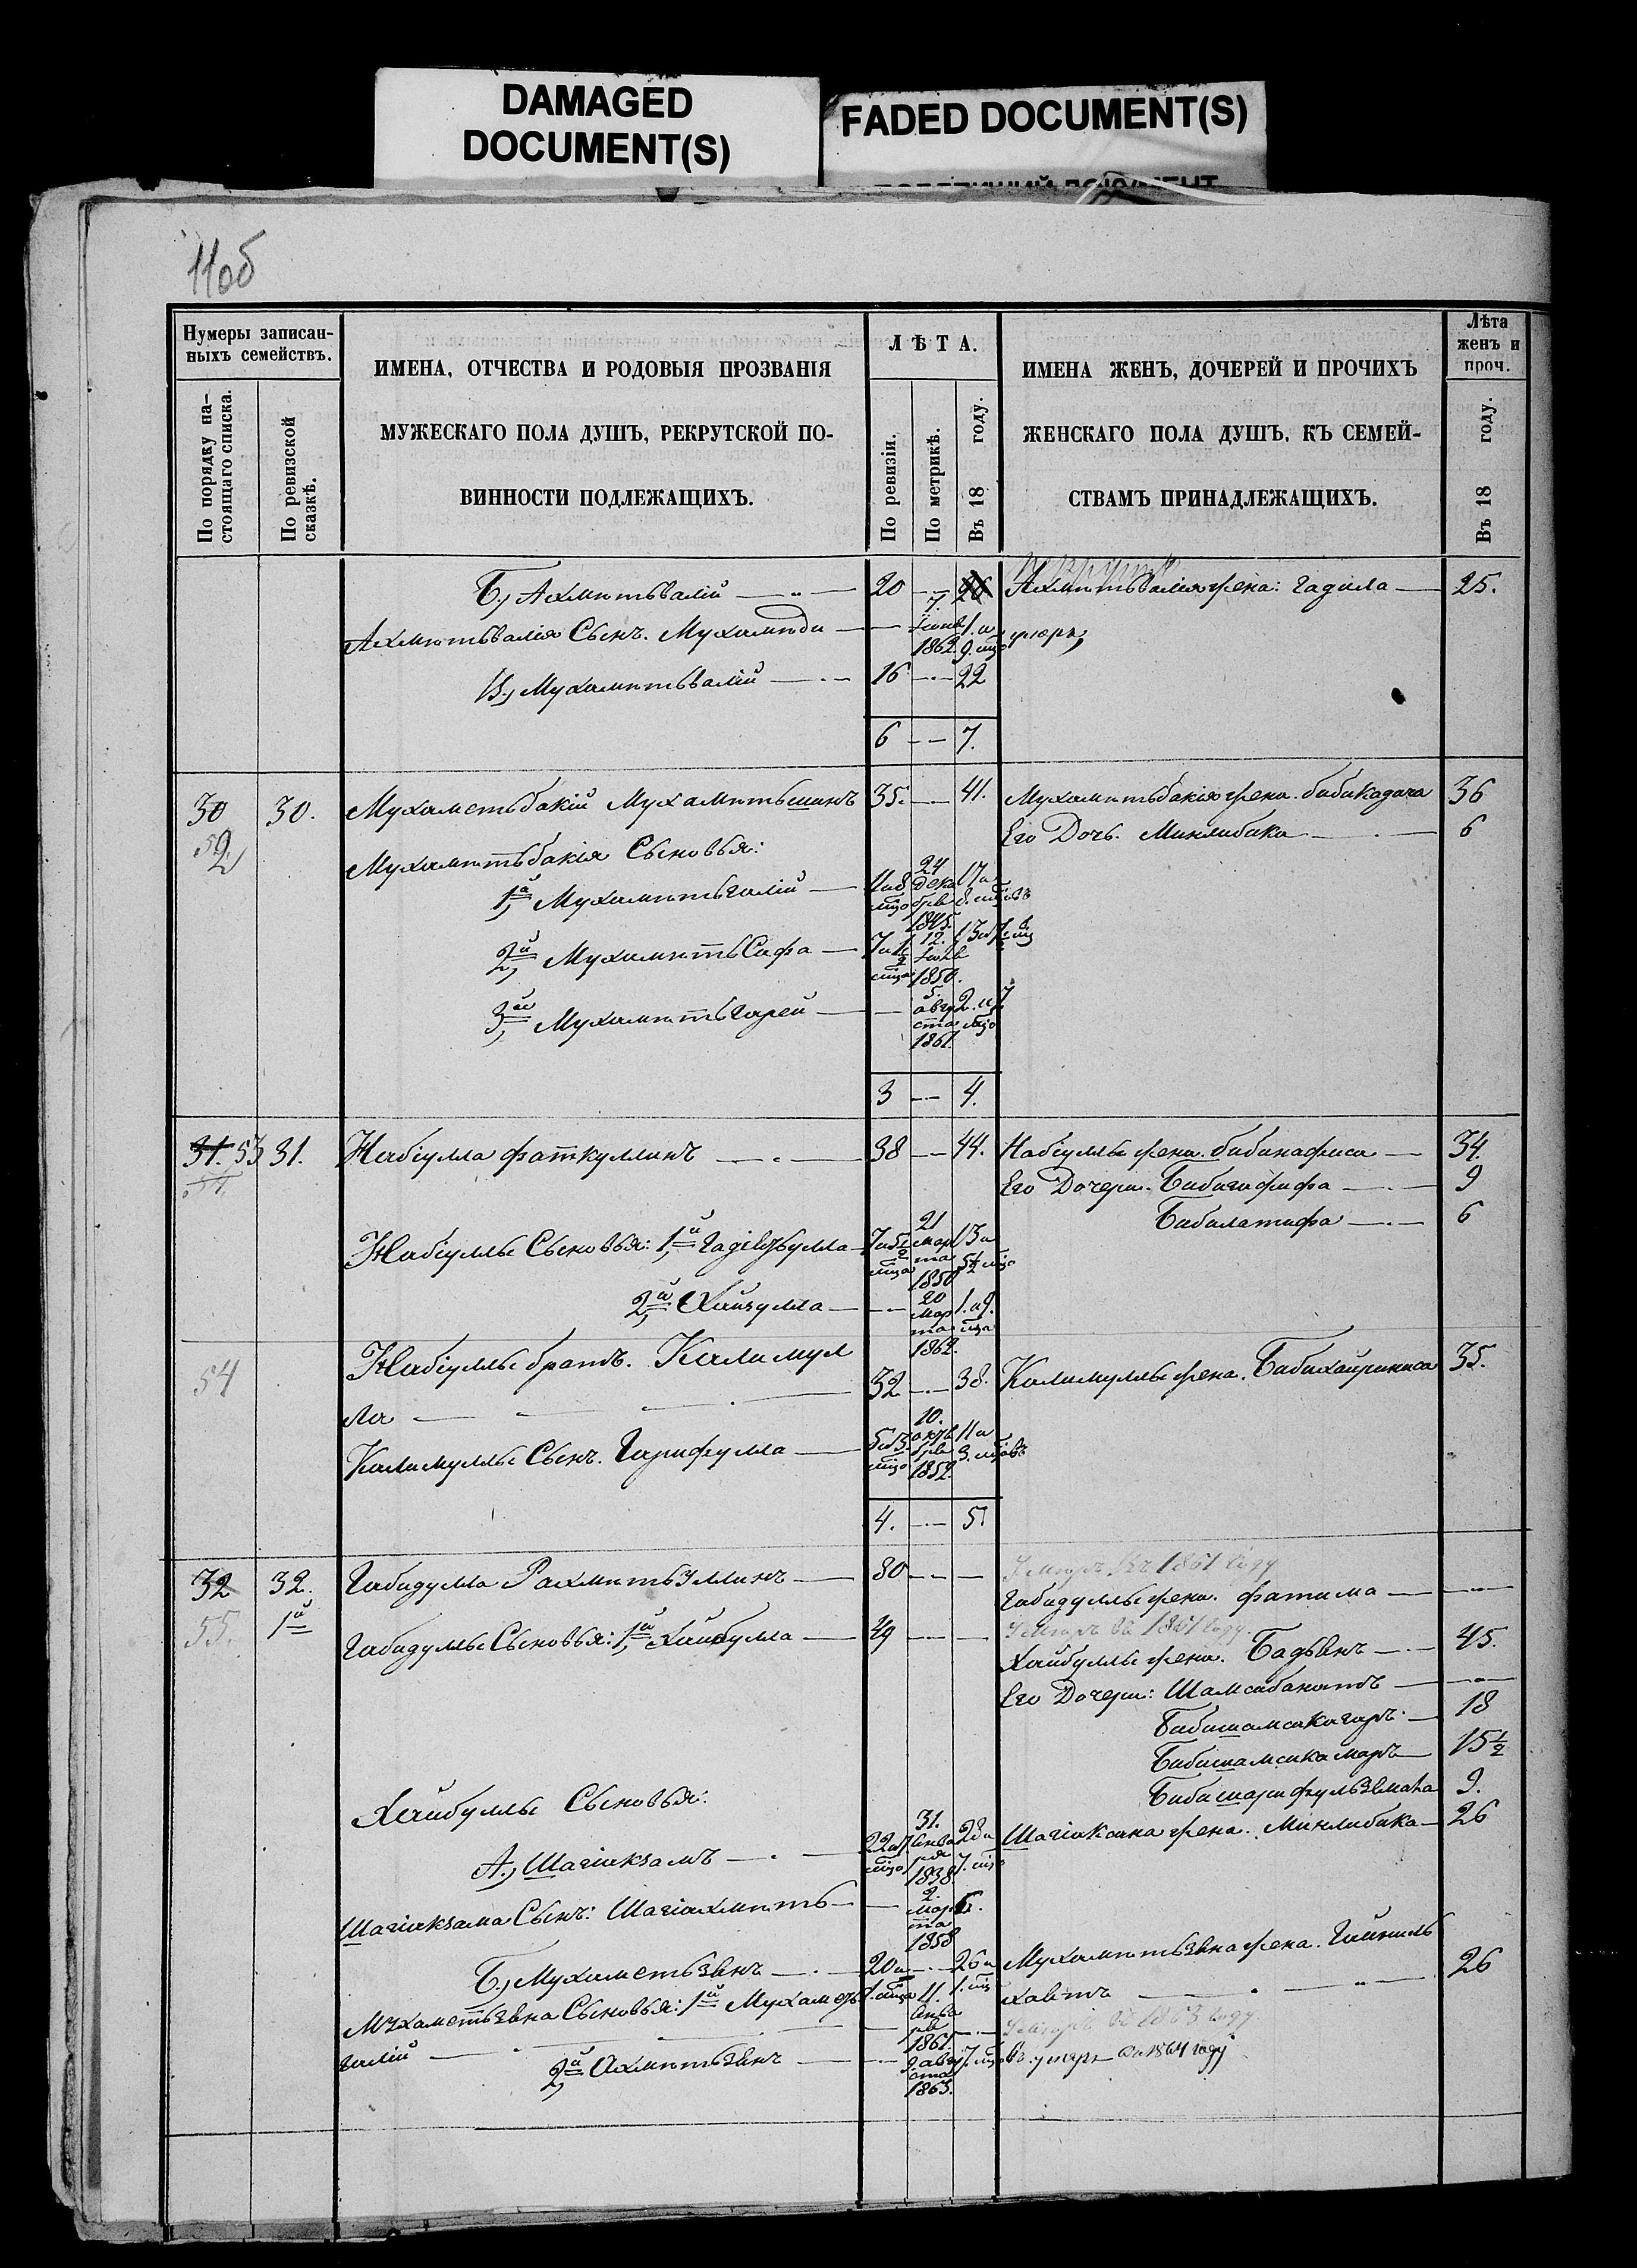 DAMAGED
DOCUMENT(S)
FADED DOCUMENT(S)
11об
Нумеры записан-
ныхъ семействъ.
По порядку на-
стоящаго списка.
По ревизской
сказкѣ.
ИМЕНА, ОТЧЕСТВА И РОДОВЫЯ ПРОЗВАНІЯ
МУЖЕСКАГО ПОЛА ДУШЪ, РЕКРУТСКОЙ ПО-
ВИННОСТИ ПОДЛЕЖАЩИХЪ.
ЛѢТА.
По ревизіи.
По метрикѣ.
Въ 18 году.
ИМЕНА ЖЕНЪ, ДОЧЕРЕЙ И ПРОЧИХЪ
ЖЕНСКАГО ПОЛА ДУШЪ, КЪ СЕМЕЙ-
СТВАМЪ ПРИНАДЛЕЖАЩИХЪ.
Лѣта
женъ и
проч.
Въ 18 году.
Б., Ахметьвалій 20 26 Ахметьвалія жена: Гадила 25.
Ахметьвалія Сынъ. Мухамеди 7. Іюня 1862. 1. и 9. мцо
В., Мухаметьвалій 16 22
6 7.
30 30. Мухаметьбакій Мухаметьшинъ 35. 41. Мухаметьбакія жена. бибикадача 36
52 Его Дочь. Минлибика 6
Мухаметьбакія Сыновья:
1й, Мухаметьгалій 11 и 8 мцо 24 декабря 1845. 17 и 8. мцовъ
2й, Мухаметьсафа 7 и 1/2 мца 12. Іюля 1850. 13 и
3й, Мухаметьгарей 5. августа 1861. 2. и 7 мцо
3 4.
31. 53 31. Набіулла фаткуллинъ 38 44. Набіуллы жена. бибинафиса 34.
54. Его Дочери. Бибигафифа 9
Бибилатифа 6
Набіуллы Сыновья: 1й, 21 марта 1850 13 и 5 1/2 мцо
2й, Хайгулла 20 марта 1862. 1. и 9. мца
54 Набіуллы братъ. Калимул
ла 32 38. Калимуллы жена. Бибихайриниса 35.
Калимуллы Сынъ. Гарифулла 5 и 3. мцо 10. октября 1852. 11 и 3. мцовъ
4. 5
32 32. Габидулла Рахметьуллинъ 80 Умеръ въ 1861 году
55. 1й Габидуллы жена. Фатима
Габидуллы Сыновья: 1й, Хайбулла 49 Умеръ въ 1861 году.
Хайбуллы жена. Бадъянъ 45.
Его Дочери: Шамсабанатъ
Бибишамсикагаръ. 18
Бибишамсикамаръ 15 1/2
9.
Хайбуллы Сыновья:
А., Шагіакзамъ 22 и 7 мцо 31. Января 1838. 28 и 7. мцо Шагіакзама жена. Минлибика 26
Шагіакзама Сынъ: Шагіахметь 2. марта 1858
Б., Мухаметьзянъ 20 и 1. мца 26 и 1. мца Мухаметьзяна жена. Гайниль
хаятъ 26
Мухаметьзяна Сыновья: 1й Мухаметь
галій 11. Января 1861. Умеръ въ 1863 году.
2й, Ахметьзянъ 9. августа 1863. 7 мцовъ. умеръ въ 1864 году